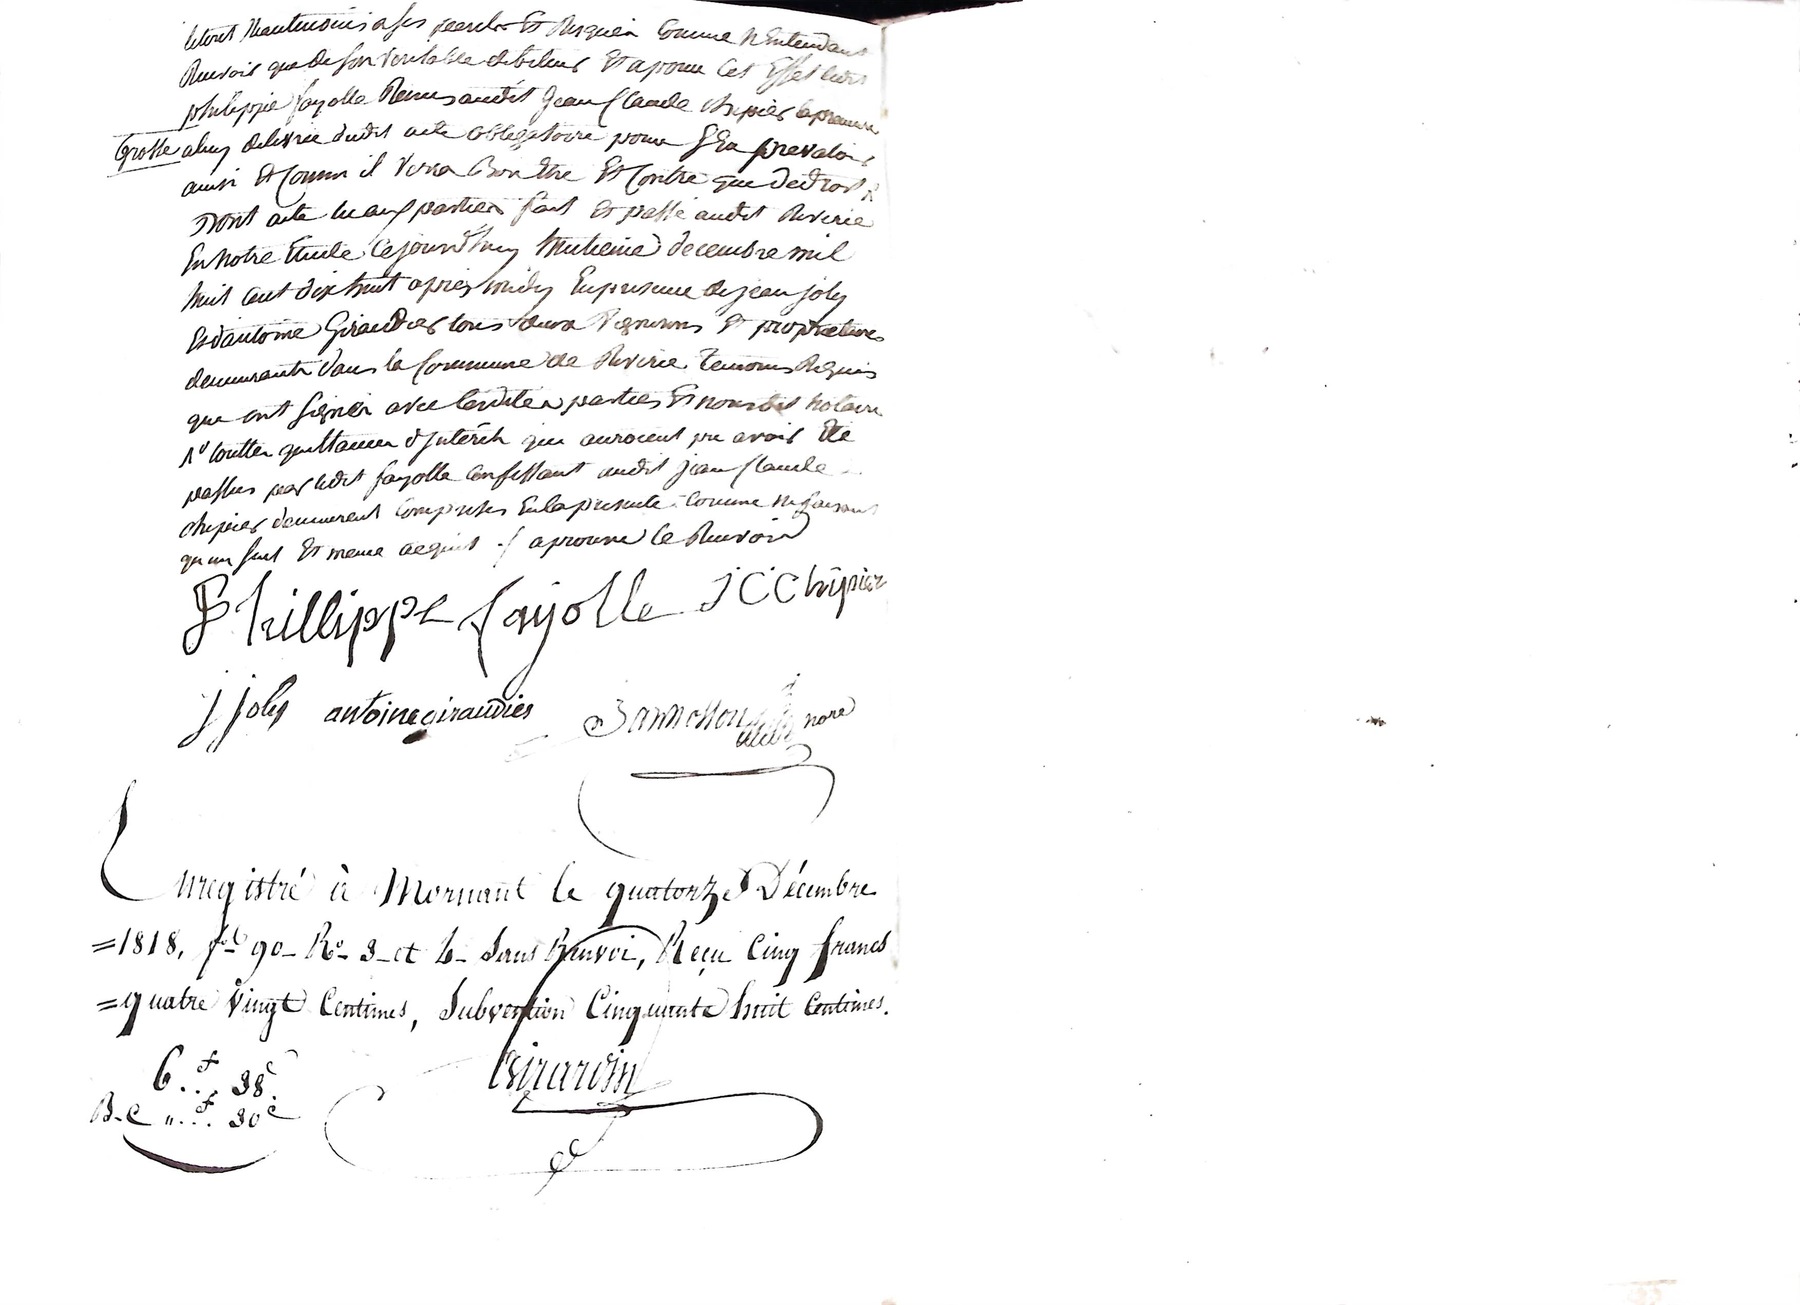 letout neantmoins a ses perils Et Risques Comme N'Entendant
Recevoir que de son veritable debiteur Et a pour Cet Effet ledit
philippe fayolle Remis audit Jean Claude chipier la premiere
Grosse a luy delivrée dudit acte obligatoire pour S'En prevaloir
ainsi Et Comme il verra Bon Etre Et Contre que de droit
Dont acte lu aux parties fait Et passé audit Riverie
En Notre Etude Cejourd'huy huitieme decembre mil
huit Cent dix huit apres midy En presence de jean joly
Et d'antoine Giraudier tous deux vignerons Et proprietaires
demeurants dans la Commune de Riverie Temoins Requis
que ont signés avec lesdites parties Et nous dit Notaire
toutes quittances d'Interêts qui auroient pu avoir Eté
passées par ledit fayolle Confessant audit jean Claude
chipier demeurent Comprises En la presente Comme ne faisant
qu'un seul Et meme acquit ./. aprouvé le Renvoi
Phillippe fayolle J C Chipier
j joly antoine giraudier nore
Enregistré à Mornant le quatorze Décembre
=1818, fo 90 Ro 3 et 4 Sans Renvoi, Reçu Cinq francs
=quatre Vingt Centimes, Subvention Cinquante huit Centimes.
Girardin
6.f.. 38c
B-C "..f. 30c